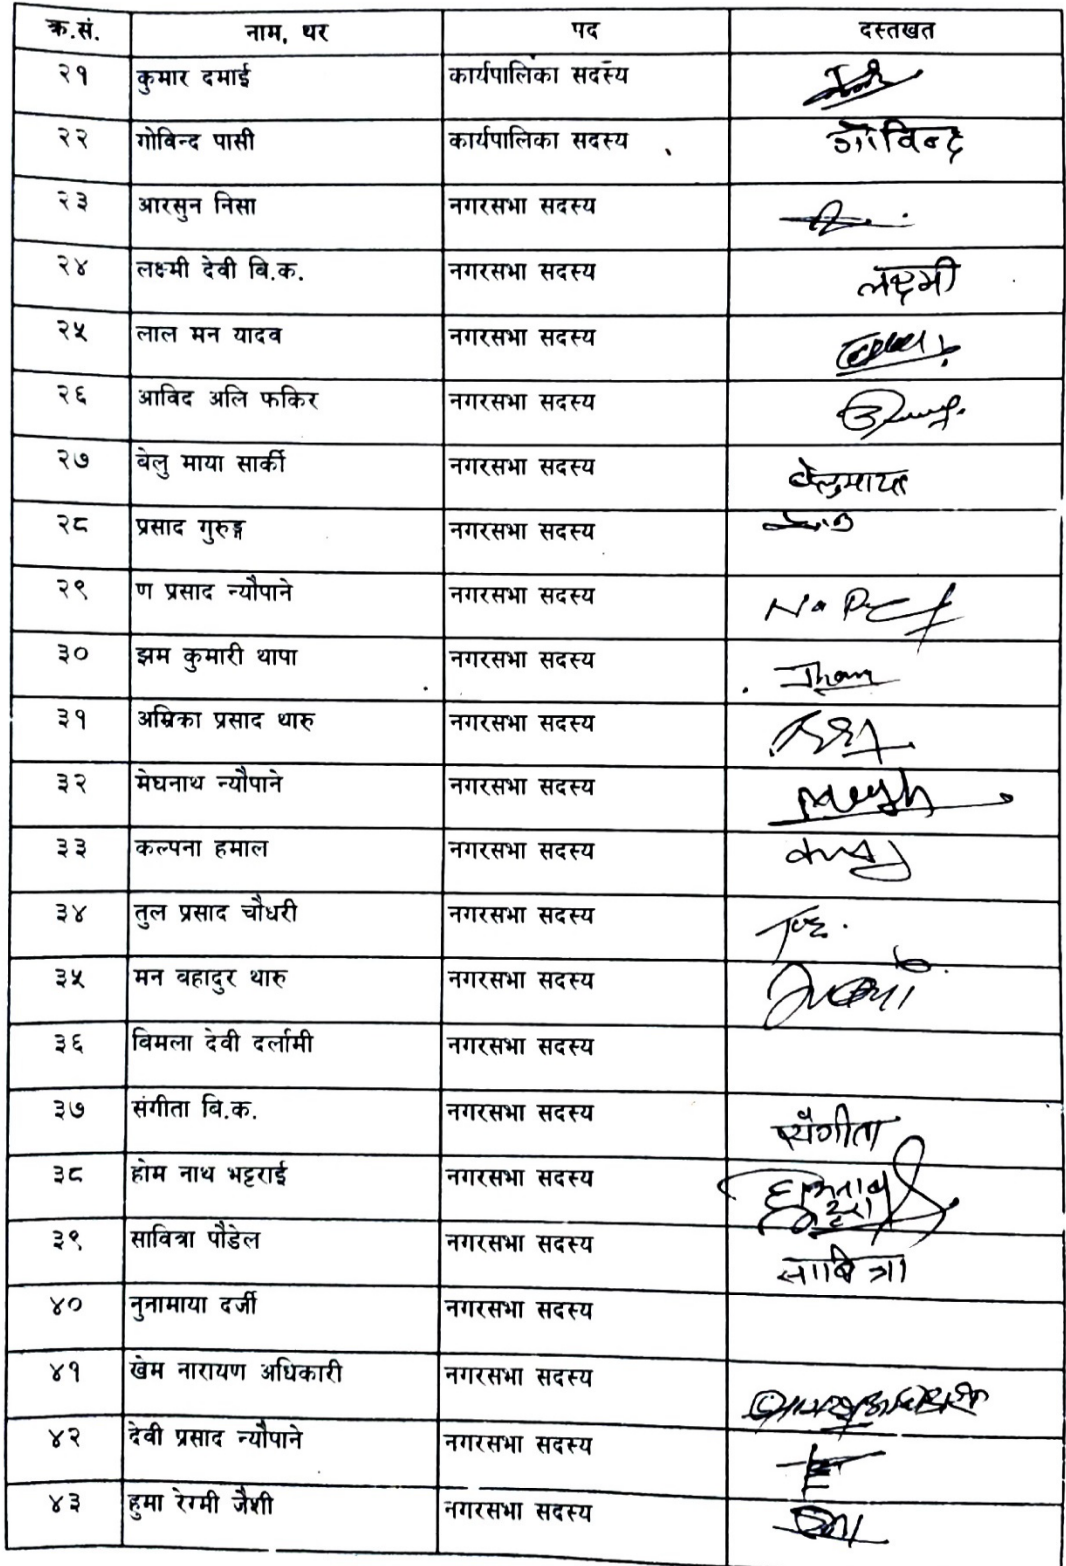 क्र.सं. नाम, थर पद दस्तखत
२१ कुमार दमाई कार्यपालिका सदस्य
२२ गोविन्द पासी कार्यपालिका सदस्य गोविन्द
२३ आरसुन निसा नगरसभा सदस्य
२४ लक्ष्मी देवी बि.क. नगरसभा सदस्य लक्ष्मी
२५ लाल मन यादव नगरसभा सदस्य
२६ आविद अलि फकिर नगरसभा सदस्य
२७ बेलु माया सार्की नगरसभा सदस्य बेलुमाया
२८ प्रसाद गुरुङ्ग नगरसभा सदस्य
२९ ण प्रसाद न्यौपाने नगरसभा सदस्य
३० झम कुमारी थापा नगरसभा सदस्य Jham
३१ अम्रिका प्रसाद थारु नगरसभा सदस्य
३२ मेघनाथ न्यौपाने नगरसभा सदस्य
३३ कल्पना हमाल नगरसभा सदस्य
३४ तुल प्रसाद चौधरी नगरसभा सदस्य
३५ मन बहादुर थारु नगरसभा सदस्य
३६ विमला देवी दर्लामी नगरसभा सदस्य
३७ संगीता बि.क. नगरसभा सदस्य संगीता
३८ होम नाथ भट्टराई नगरसभा सदस्य
३९ सावित्रा पौडेल नगरसभा सदस्य साबित्रा
४० नुनामाया दर्जी नगरसभा सदस्य
४१ खेम नारायण अधिकारी नगरसभा सदस्य
४२ देवी प्रसाद न्यौपाने नगरसभा सदस्य
४३ हुमा रेग्मी जैशी नगरसभा सदस्य